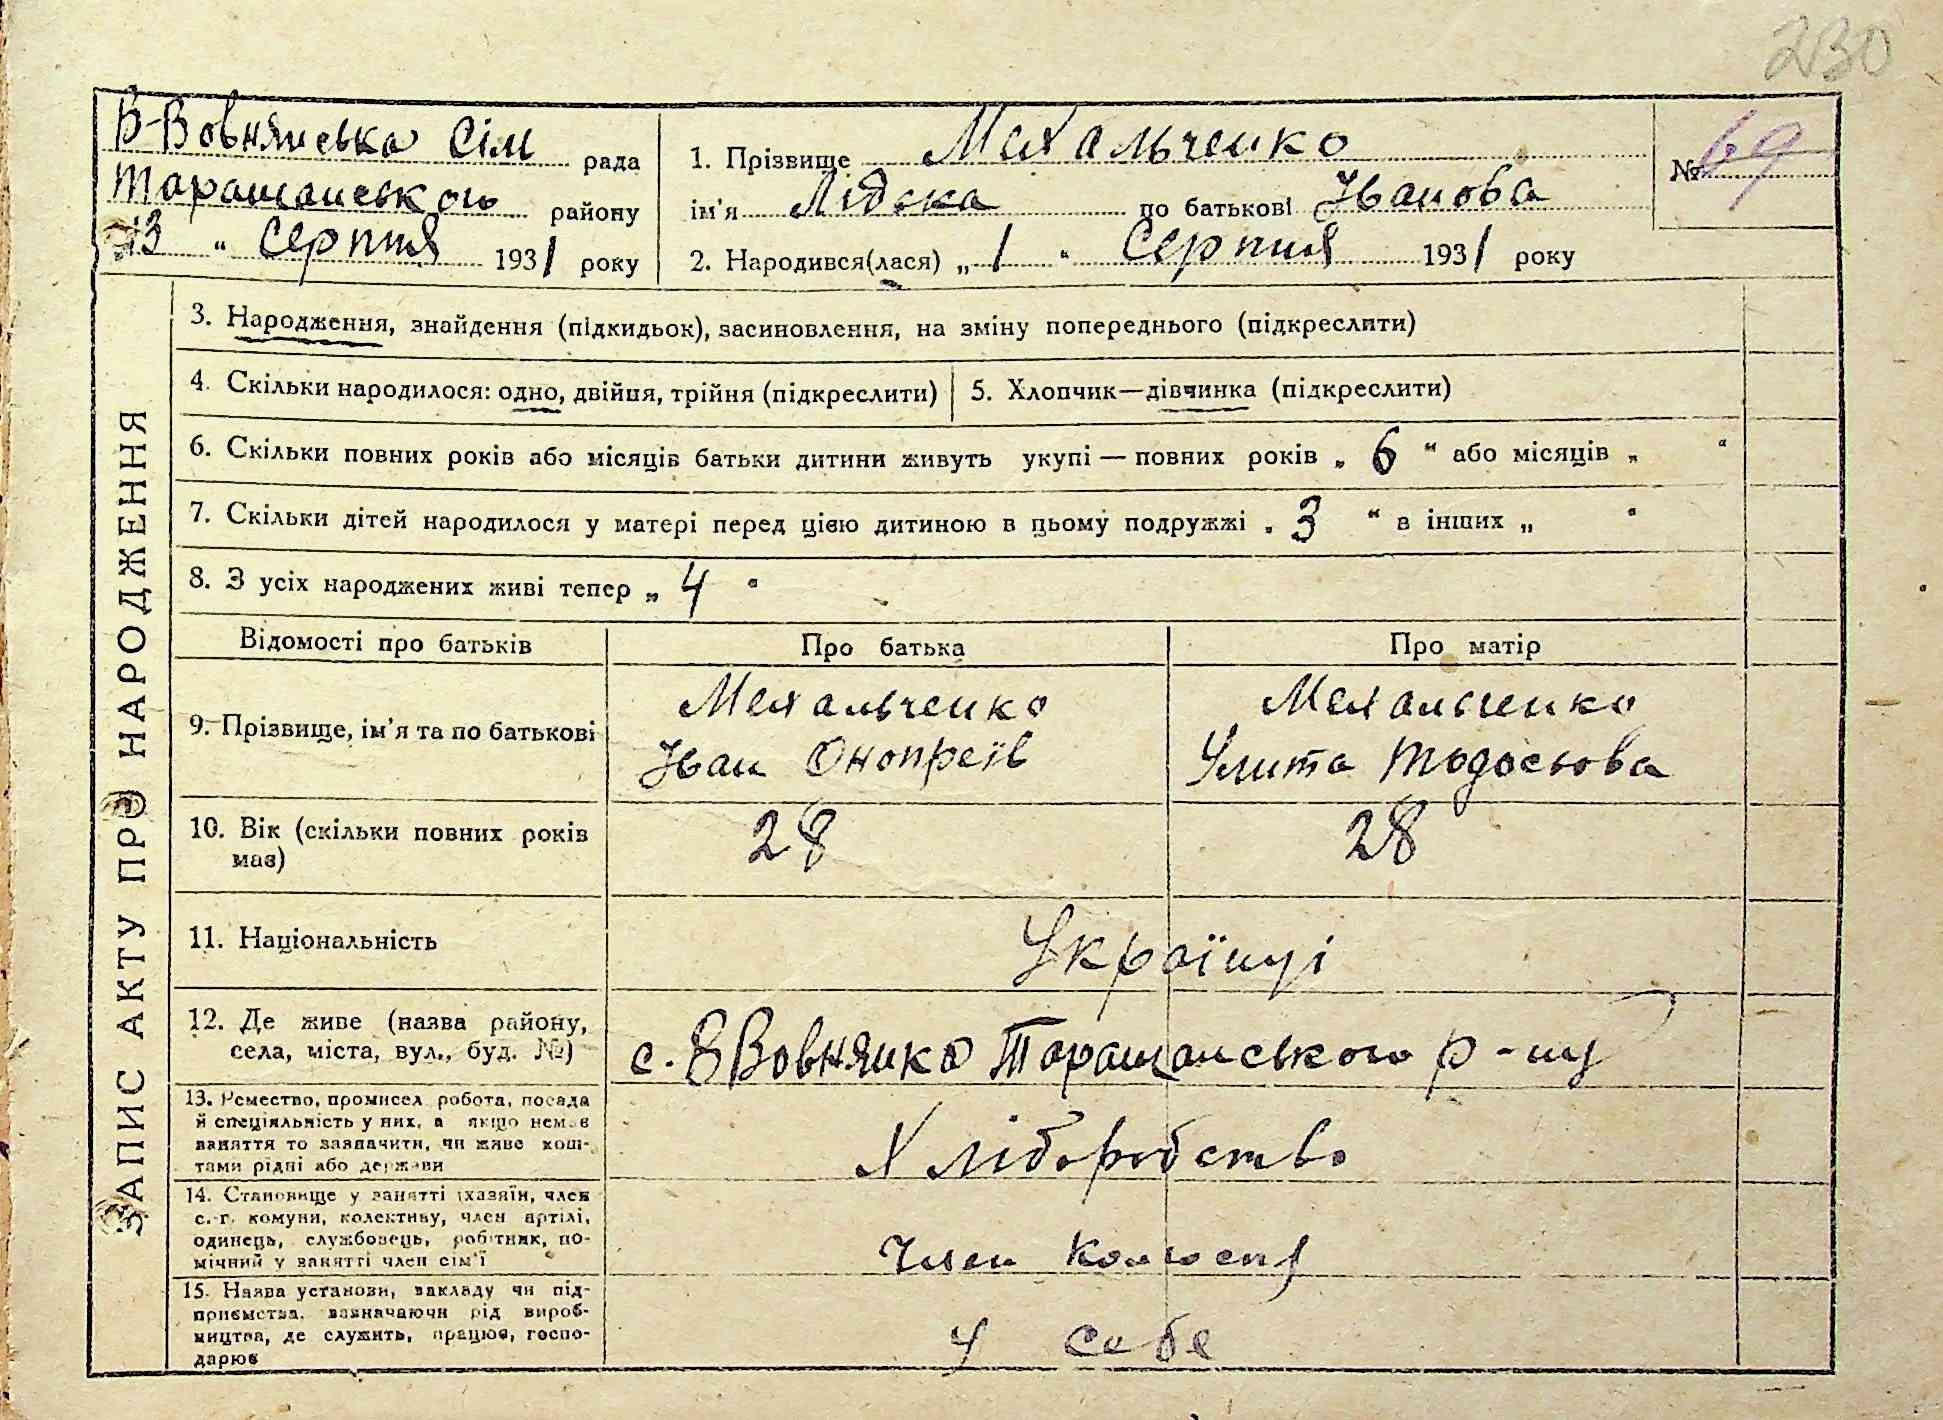 230
В-Вовнянська Сіл рада
Таращанського району
"13" Серпня 1931 року
1. Прізвище Михальченко
ім'я Лідска по батькові Іванова
2. Народився(лася) „1" Серпня 1931 року
№ 69
ЗАПИС АКТУ ПРО НАРОДЖЕННЯ
3. Народження, знайдення (підкидьок), засиновлення, на зміну попереднього (підкреслити)
4. Скільки народилося: одно, двійня, трійня (підкреслити)
5. Хлопчик—дівчинка (підкреслити)
6. Скільки повних років або місяців батьки дитини живуть укупі — повних років „ 6 " або місяців „ "
7. Скільки дітей народилося у матері перед цією дитиною в цьому подружжі „ 3 " в інших „ "
8. З усіх народжених живі тепер „ 4 "
Відомості про батьків
Про батька
Про матір
9. Прізвище, ім'я та по батькові
Михальченко
Іван Онопреїв
Михальченко
Улита Тодосьова
10. Вік (скільки повних років
має)
28
28
11. Національність
Українці
12. Де живе (назва району,
села, міста, вул., буд. №)
с. В Вовнянка Таращанського р-ну
13. Ремество, промисел робота, посада
й спеціяльність у них, а якщо немає
заняття то зазначити, чи живе кош-
тами рідні або держави
Хліборобство
14. Становище у занятті (хазяїн, член
с.-г. комуни, колективу, член артілі,
одинець, службовець, робітник, по-
мічний у занятті член сім'ї
Член
15. Назва установи, закладу чи під-
приємства, зазначаючи рід вироб-
ництва, де служить, працює, госпо-
дарює
у себе